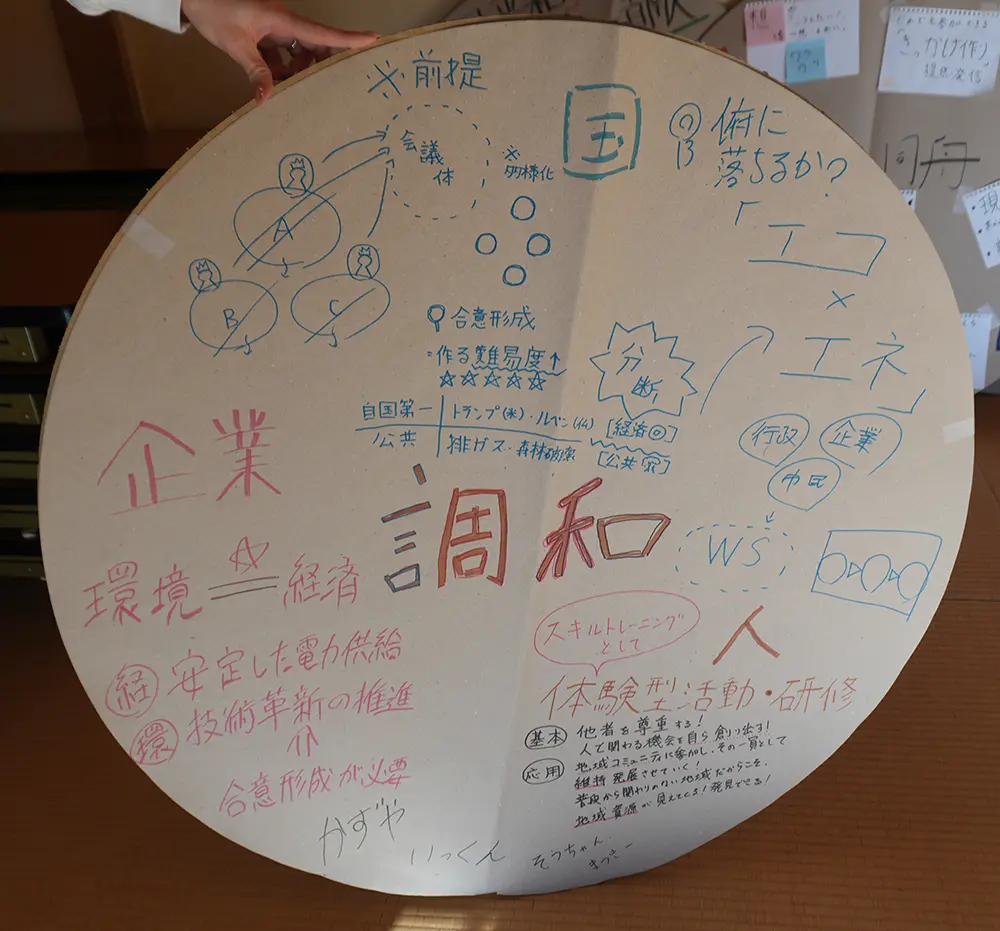 ※前提
会議
体
※
多様化
A
B
C
合意形成
=作る難易度↑
☆☆☆☆☆
自国第一
トランプ(米)・ルペン(仏)
[経済◎]
公共
排ガス・森林破壊
分
断
国
俯に
落ちるか?
「エコ
×
エネ」
行政
企業
市民
WS
調和
企業
環境
経済
経
安定した電力供給
環
技術革新の推進
合意形成が必要
人
スキルトレーニング
として
体験型活動・研修
基本
他者を尊重する!
人と関わる機会を自ら創り出す!
応用
地域コミュニティに参加し、その一員として
維持発展させていく!
普段から関わりのない地域だからこそ、
地域資源が見えてくる!発見できる!
かずや
いっくん
そうちゃん
かけ作り
提供発信
同舟
現